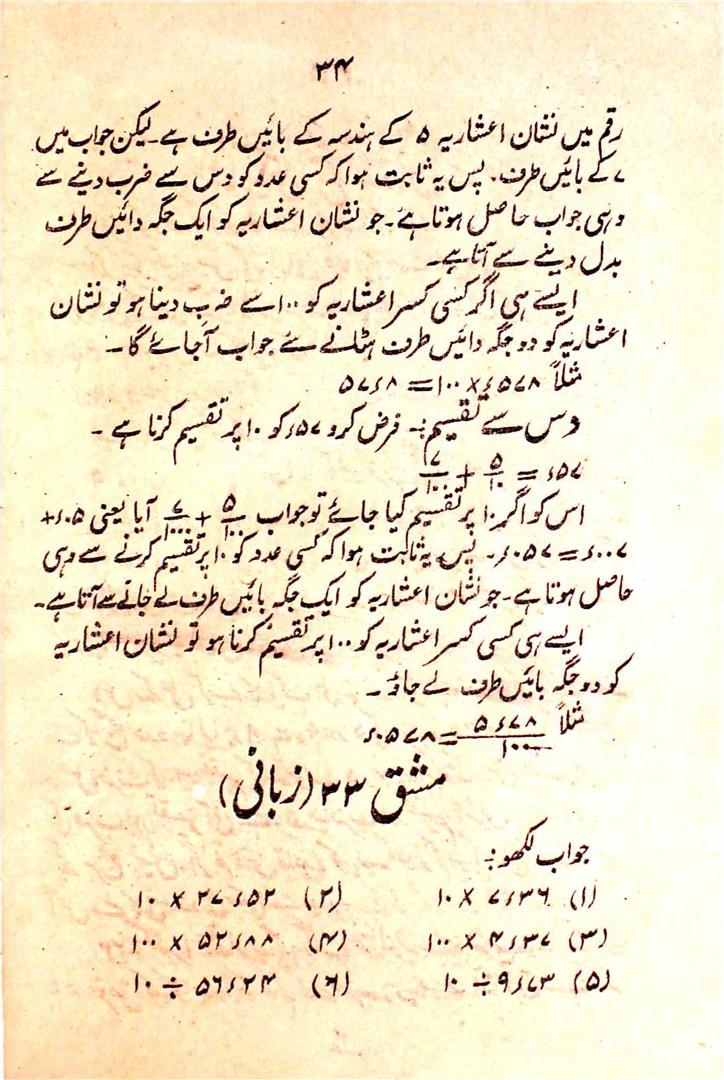 ۳۴
رقم میں نشان اعشاریہ ۵ کے ہندسہ کے بائیں طرف ہے۔ لیکن جواب میں
۷ کے بائیں طرف۔ پس یہ ثابت ہوا کہ کسی عدد کو دس سے ضرب دینے سے
وہی جواب حاصل ہوتا ہے۔ جو نشان اعشاریہ کو ایک جگہ دائیں طرف
بدل دینے سے آتا ہے۔
ایسے ہی اگر کسی کسر اعشاریہ کو ۱۰۰ سے ضرب دینا ہو تو نشان
اعشاریہ کو دو جگہ دائیں طرف ہٹانے سے جواب آجائے گا۔
مثلاً ۵۷۸ء × ۱۰۰ = ۵۷ء۸
دس سے تقسیم:۔ فرض کرو ۵۷ء کو ۱۰ پر تقسیم کرنا ہے۔
۵۷ء = ۵/۱۰ + ۷/۱۰۰
اس کو اگر ۱۰ پر تقسیم کیا جائے تو جواب ۵/۱۰۰ + ۷/۱۰۰۰ آیا یعنی ۰۵ء +
۰۰۷ء = ۰۵۷ء۔ پس یہ ثابت ہوا کہ کسی عدد کو ۱۰ پر تقسیم کرنے سے وہی
حاصل ہوتا ہے۔ جو نشان اعشاریہ کو ایک جگہ بائیں طرف لے جانے سے آتا ہے۔
ایسے ہی کسی کسر اعشاریہ کو ۱۰۰ پر تقسیم کرنا ہو تو نشان اعشاریہ
کو دو جگہ بائیں طرف لے جاؤ۔
مثلاً ۵ء۷۸/۱۰۰ = ۰۵۷۸ء
مشق ۳۳ (زبانی)
جواب لکھو:۔
(۱) ۷ء۳۶ × ۱۰ (۲) ۲۷ء۵۲ × ۱۰
(۳) ۴ء۳۷ × ۱۰۰ (۴) ۵۲ء۸۸ × ۱۰۰
(۵) ۹ء۷۳ ÷ ۱۰ (۶) ۵۶ء۲۴ ÷ ۱۰